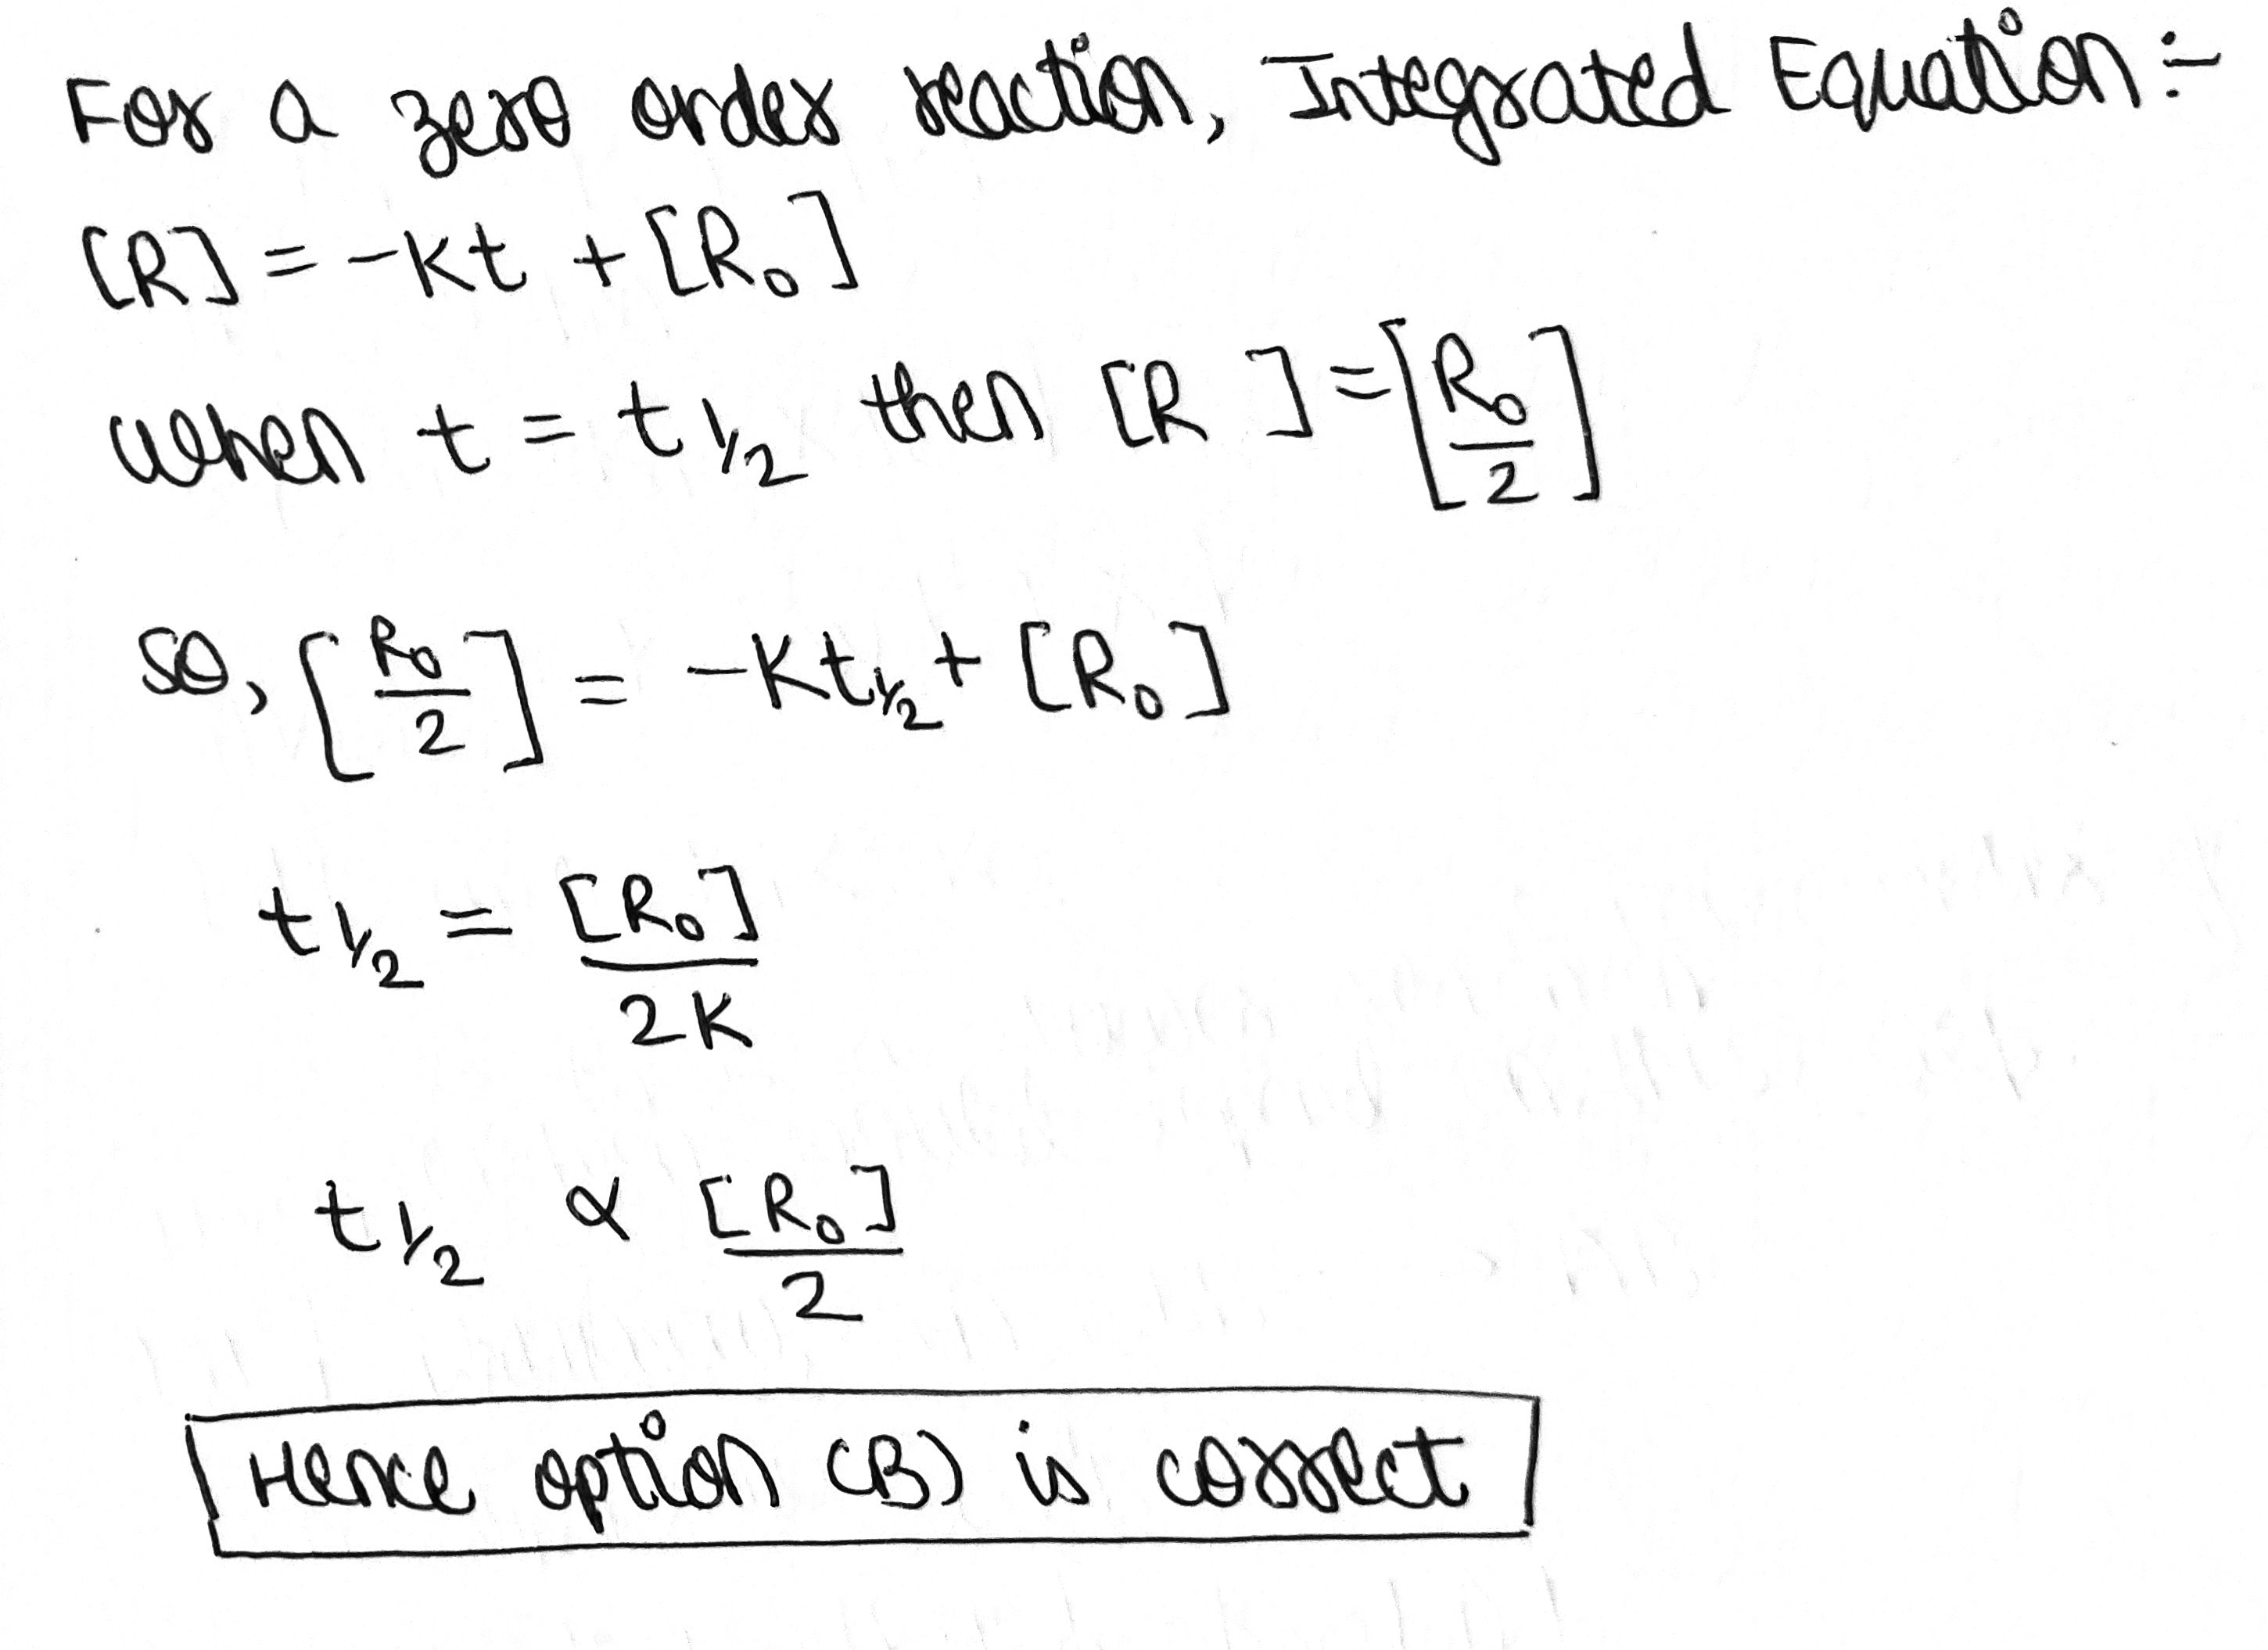 For a zero order reaction, Integrated Equation :-
[R] = -Kt + [R₀]
When t = t 1/2 then [R] = [R₀/2]
So, [R₀/2] = -Kt1/2 + [R₀]
t 1/2 = [R₀]/2K
t 1/2 ∝ [R₀]/2
Hence option (B) is correct